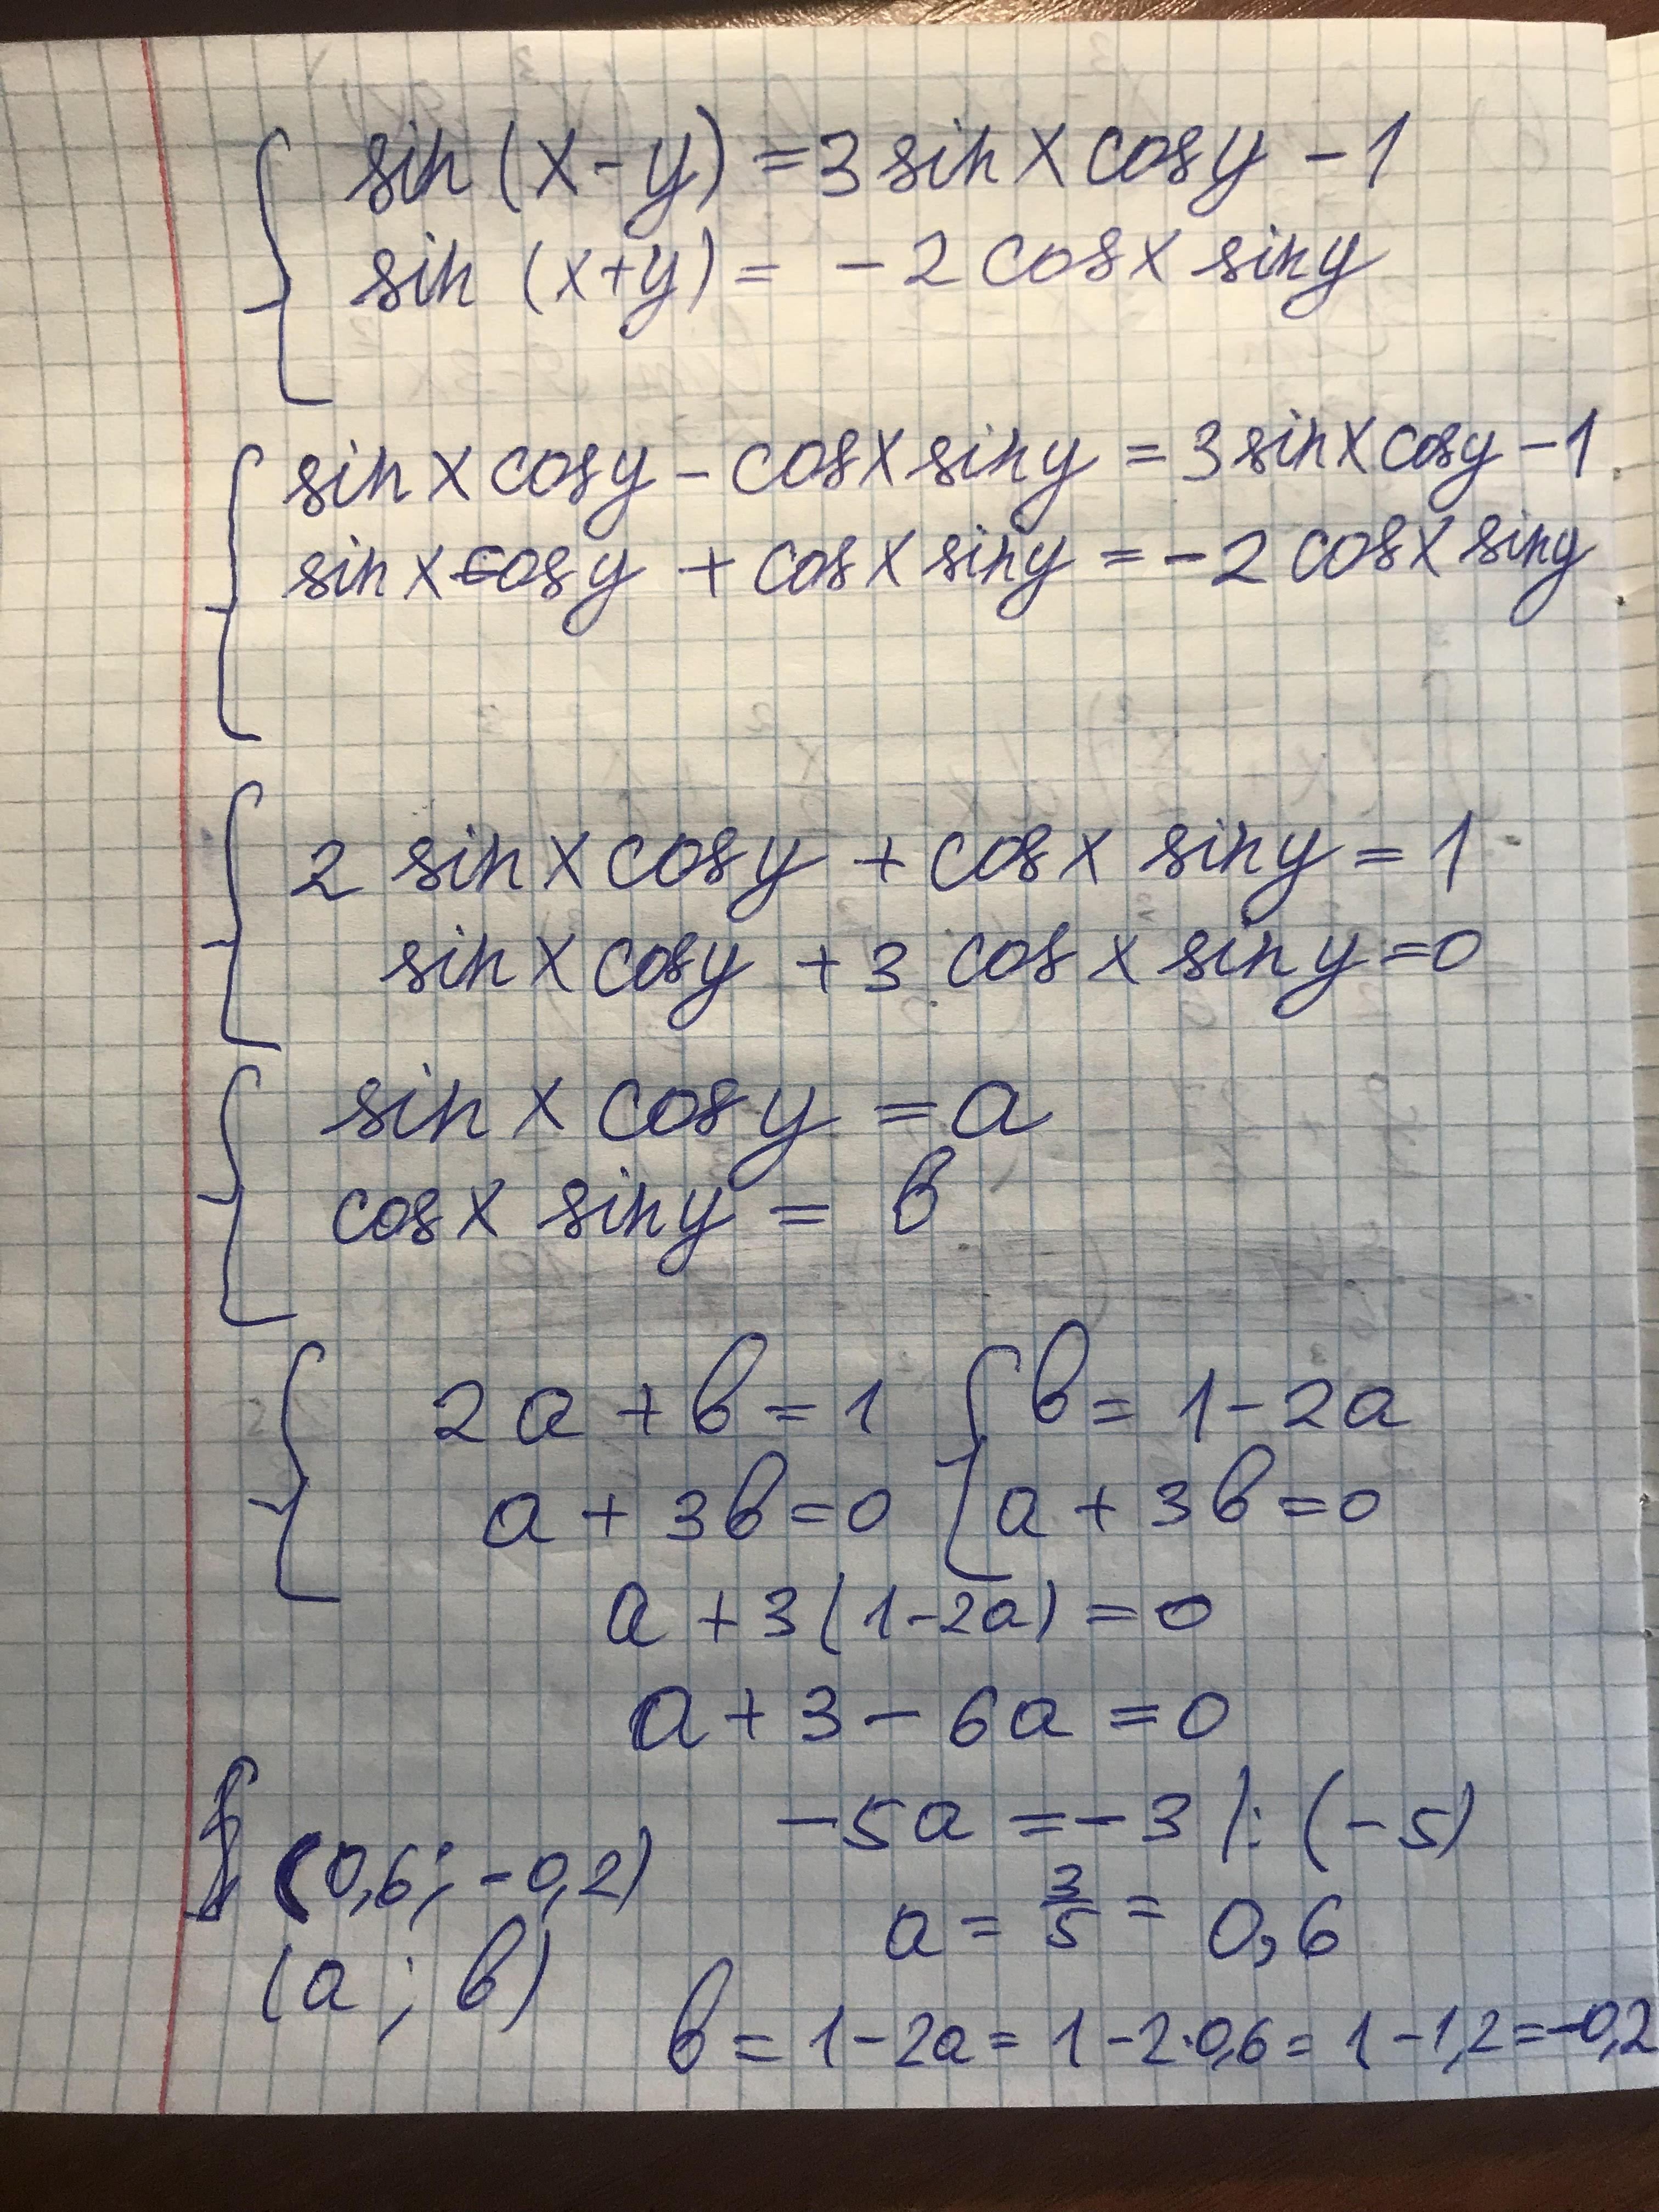 sin (x-y) = 3 sin x cos y - 1
sin (x+y) = - 2 cos x sin y
sin x cos y - cos x sin y = 3 sin x cos y - 1
sin x cos y + cos x sin y = - 2 cos x sin y
2 sin x cos y + cos x sin y = 1
sin x cos y + 3 cos x sin y = 0
sin x cos y = a
cos x sin y = b
2a + b = 1 { b = 1 - 2a
a + 3b = 0 { a + 3b = 0
a + 3(1-2a) = 0
a + 3 - 6a = 0
-5a = -3 |: (-5)
(0,6; -0,2)
a = 3/5 = 0,6
(a ; b)
b = 1 - 2a = 1 - 2·0,6 = 1 - 1,2 = -0,2